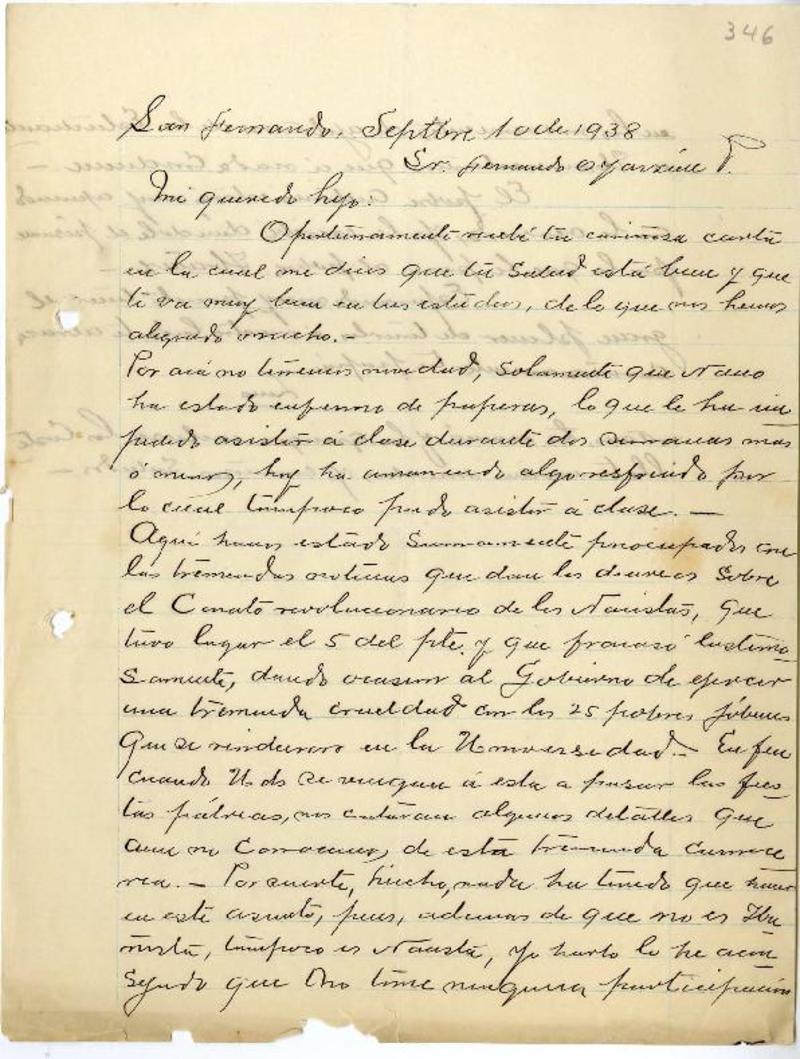 346
San Fernando, Septbre 10 de 1938
Sr. Fernando Oyarzún P.
Mi querido hijo:
Oportunamente recibí tu cariñosa carta
en la cual me dices que tu salud está bien y que
te va muy bien en tus estudios, de lo que nos hemos
alegrado mucho.-
Por acá no tenemos novedad, solamente que Nano
ha estado enfermo de paperas, lo que le ha im
pedido asistir á clase durante dos semanas mas
ó menos, hoy ha amanecido algo resfriado por
lo cual tampoco pudo asistir á clase. —
Aquí hemos estado sumamente preocupados con
las tremendas noticias que dan los diarios sobre
el Conato revolucionario de los Nacistas, que
tuvo lugar el 5 del pte. y que fracasó lastimo
samente, dando ocasion al Gobierno de ejercer
una tremenda crueldad con los 25 pobres jóbenes
que se rindieron en la Universidad.- En fin
cuando Uds se vengan á esta a pasar las fies
tas pátrias, nos contarán algunos detalles que
aun no conocemos, de esta tremenda carnice
ria. - Por suerte, Lucho, nada ha tenido que hacer
en este asunto, pues, ademas de que no es Iba
ñista, tampoco es Nacista, yo harto lo he acon
sejado que no tome ninguna participación